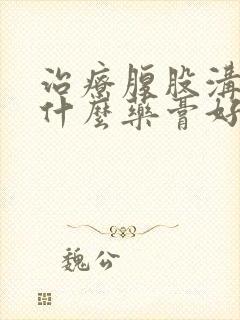 治療腹股溝
什麼藥膏好
魏公